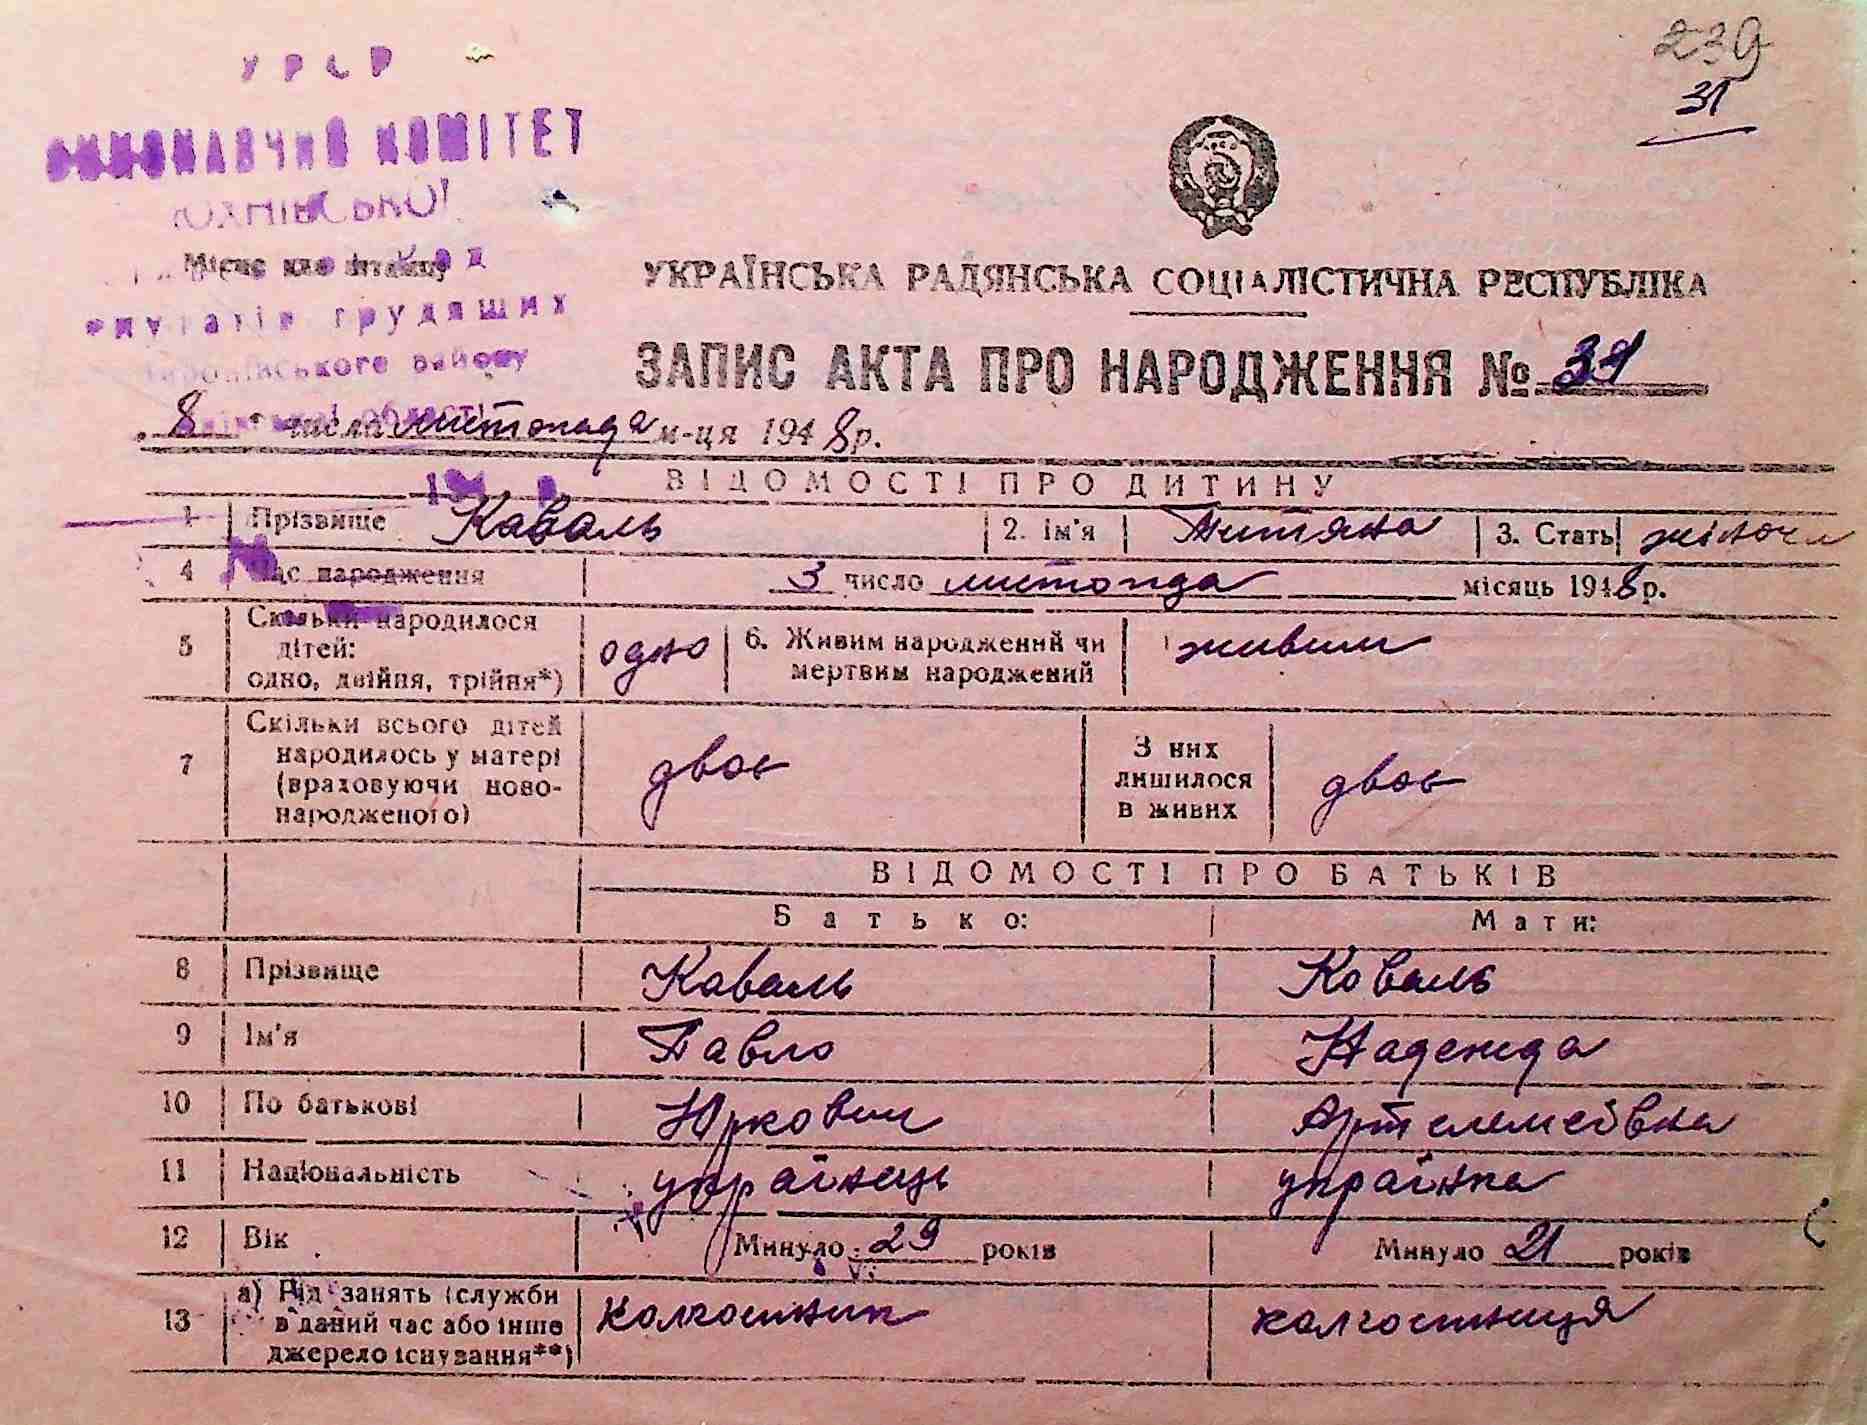 239
31
УРСР
ВИКОНАВЧИЙ КОМІТЕТ
ЮХНІВСЬКОЇ
Місце для штампу
депутатів трудящих
району
області
УКРАЇНСЬКА РАДЯНСЬКА СОЦІАЛІСТИЧНА РЕСПУБЛІКА
ЗАПИС АКТА ПРО НАРОДЖЕННЯ № 31
8 числа листопада м-ця 1948 р.
ВІДОМОСТІ ПРО ДИТИНУ
1 Прізвище Каваль 2. ім'я Титяна 3. Стать жіноча
4 Час народження 3 число листопда місяць 1948 р.
5 Скільки народилося дітей: одно, двійня, трійня*) одно 6. Живим народжений чи мертвим народжений живим
7 Скільки всього дітей народилось у матері (враховуючи ново-народженого) двоє З них лишилося в живих двоє
ВІДОМОСТІ ПРО БАТЬКІВ
Батько: Мати:
8 Прізвище Каваль Коваль
9 Ім'я Павло Надежда
10 По батькові Юркович Артелемеївна
11 Національність українець українка
12 Вік Минуло 29 років Минуло 21 років
13 а) Рід занять (служби в даний час або інше джерело існування**) колгостник колгостниця